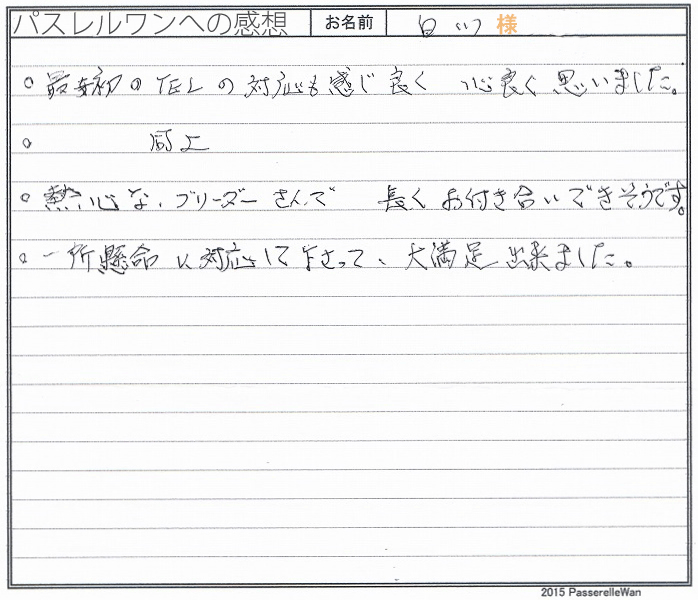 パスレルワンへの感想 お名前 白川 様
○ 最初のTELの対応も感じ良く 心良く思いました。
○ 同上
○ 熱心な、ブリーダーさんで 長くお付き合いできそうです。
○ 一所懸命に対応して下さって、大満足出来ました。
2015 PasserelleWan